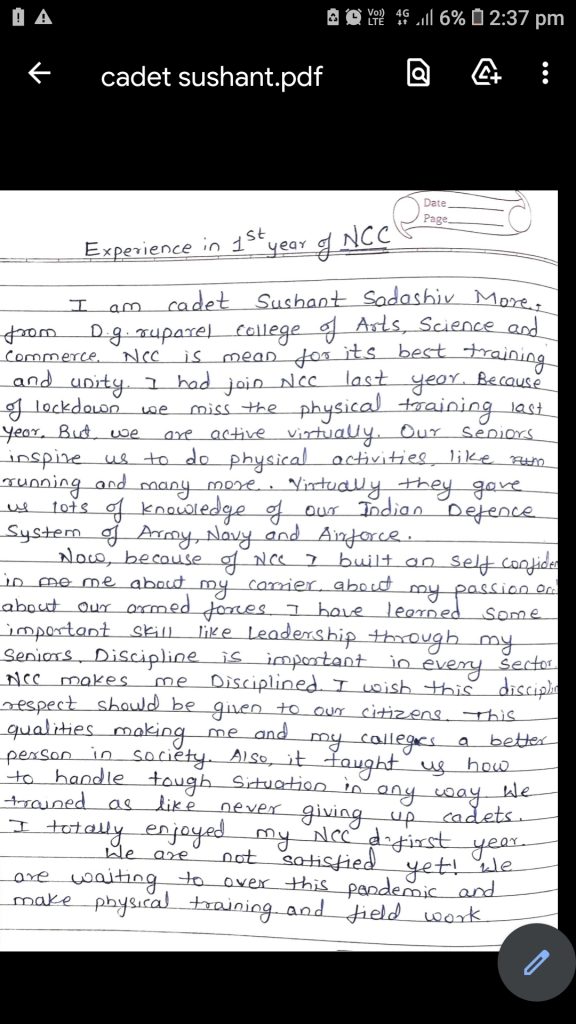 4G 6% 2:37 pm
cadet sushant.pdf
Date
Page
Experience in 1st year of NCC
I am cadet Sushant Sadashiv More,
from D.g. ruparel college of Arts, Science and
commerce. NCC is mean for its best training
and unity. I had join NCC last year. Because
of lockdown we miss the physical training last
year. But, we are active virtually. Our seniors
inspire us to do physical activities, like
running and many more.. Virtually they gave
us lots of knowledge of our Indian Defence
System of Army, Navy and Airforce.
Now, because of NCC I built an self confiden
in me about my carrier, about my passion an
about our armed forces. I have learned some
important skill like Leadership through my
Seniors. Discipline is important in every sector
NCC makes me Disciplined. I wish this discipli
respect should be given to our citizens. This
qualities making me and my a better
person in society. Also, it taught us how
to handle tough situation in any way. We
trained as like never giving up cadets.
I totally enjoyed my NCC first year.
We are not satisfied yet! We
are waiting to over this pandemic and
make physical training and field work